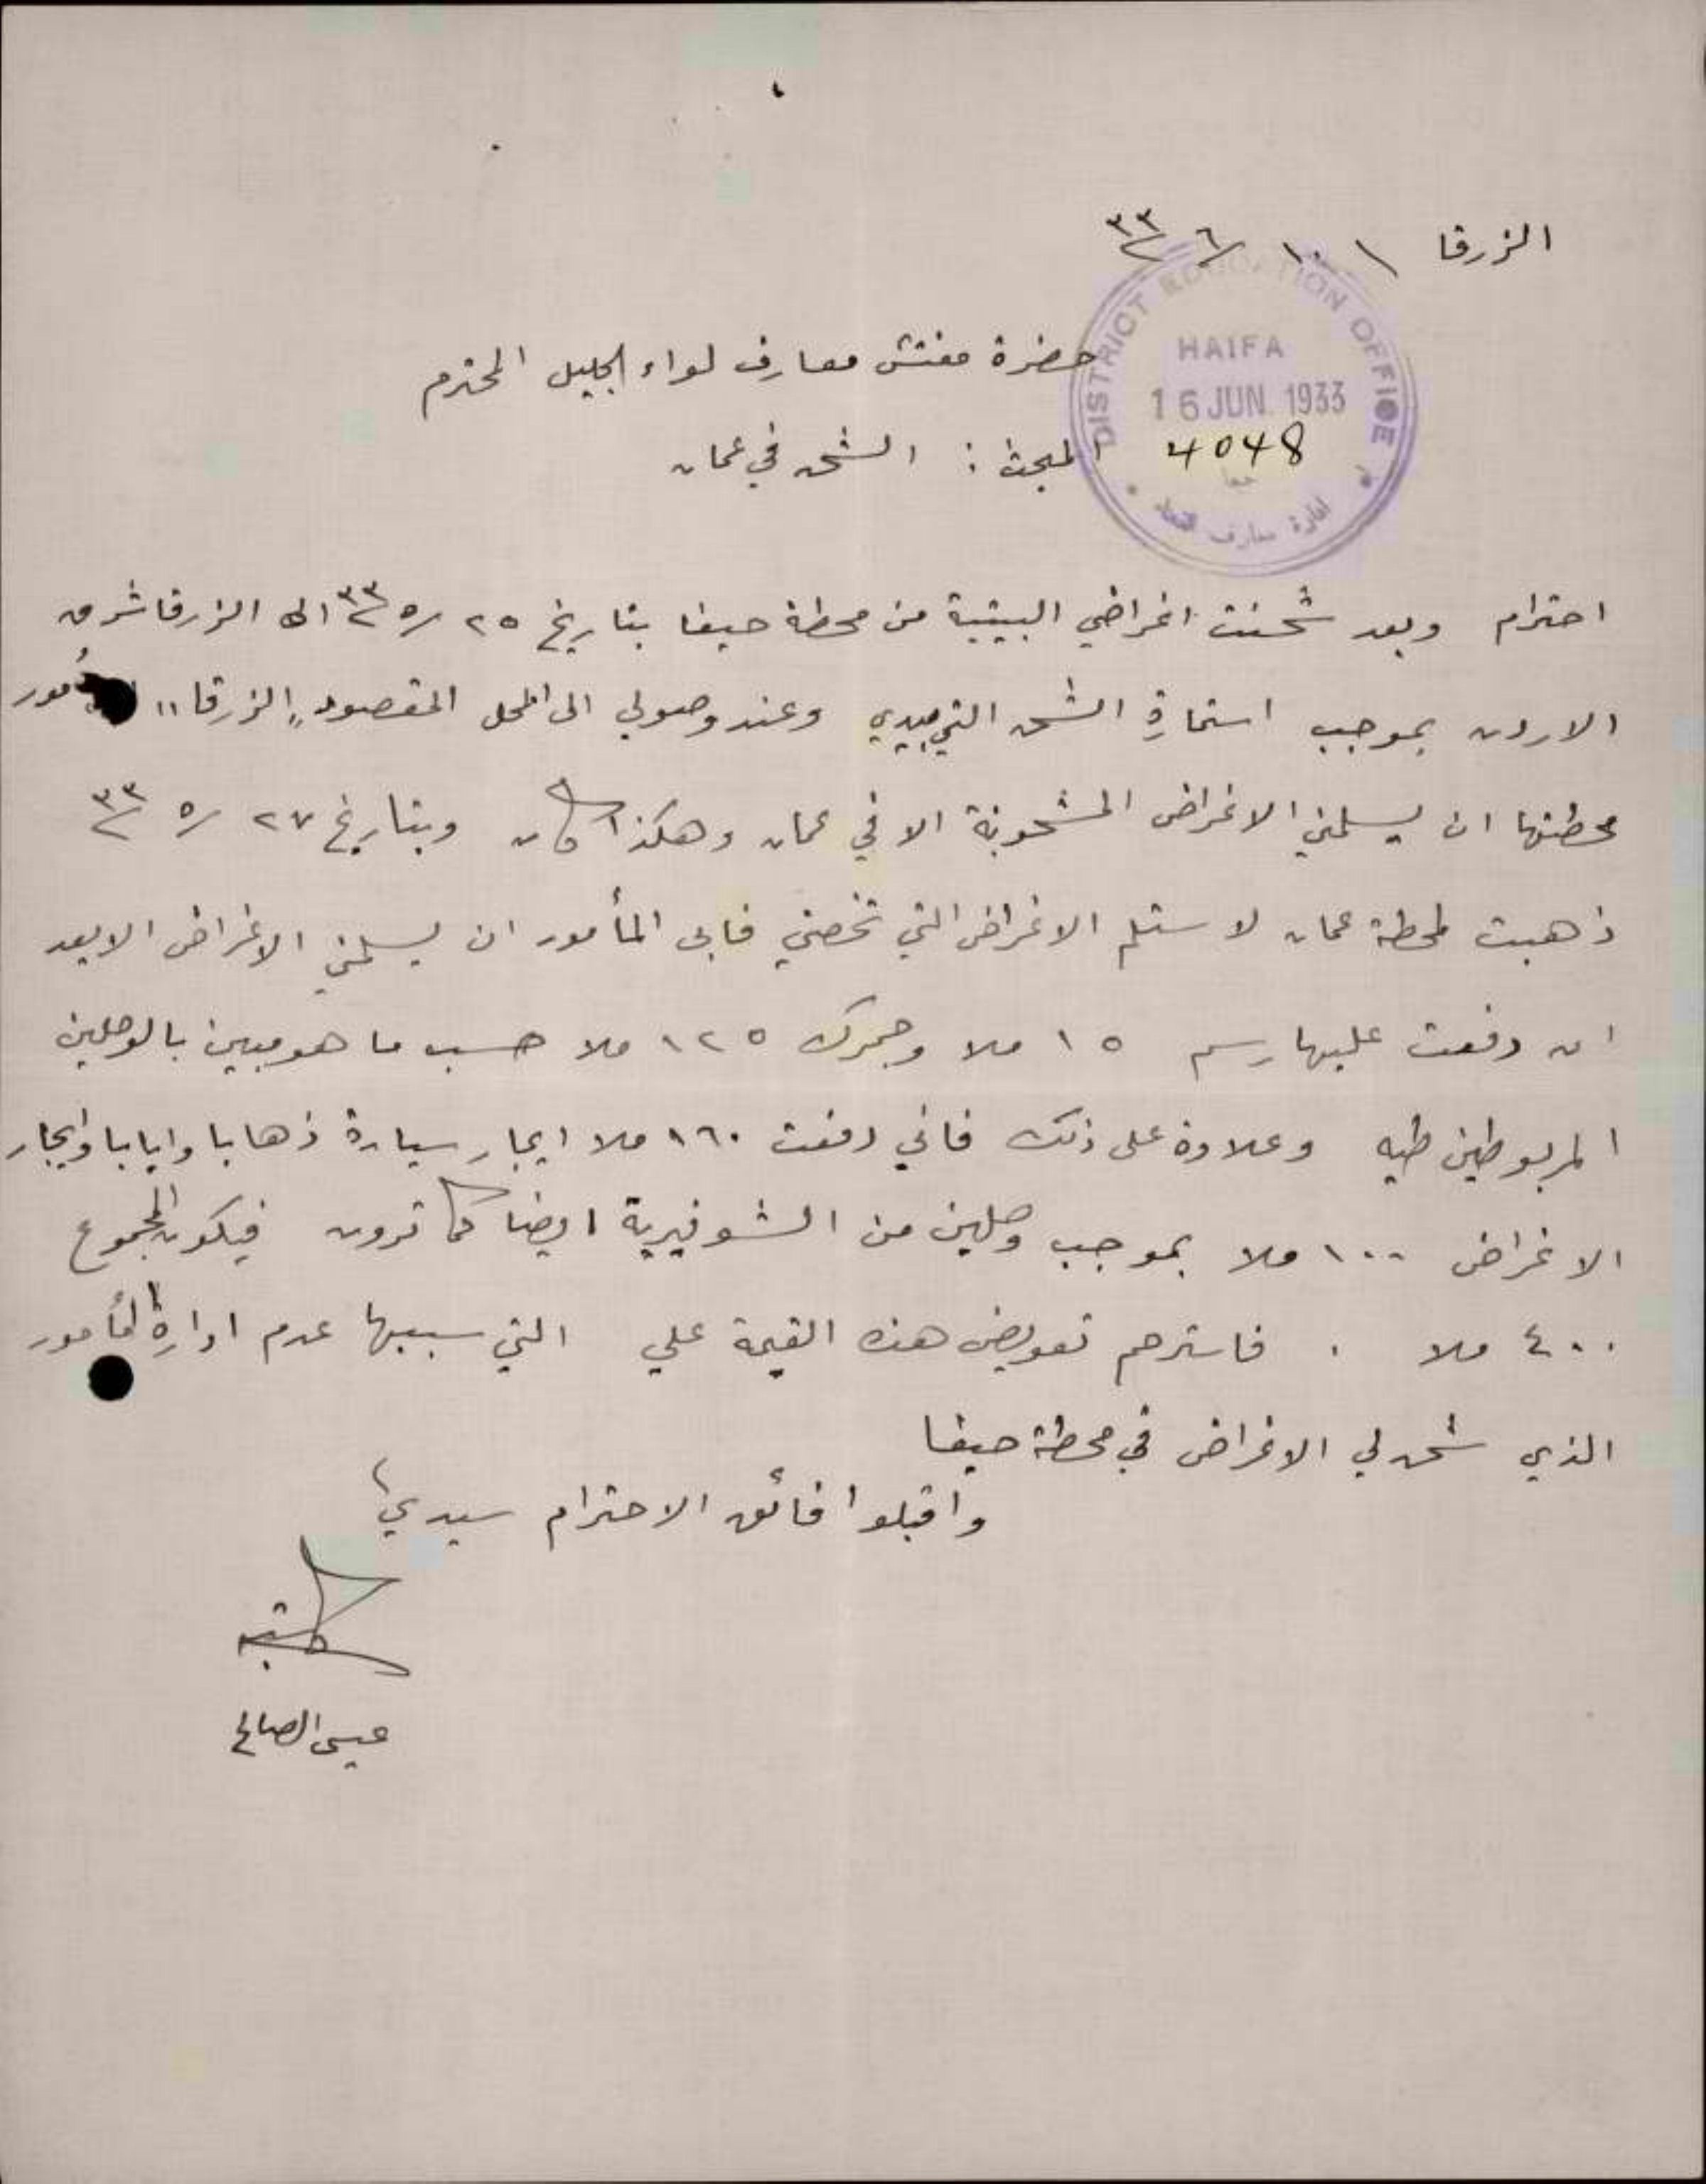 الزرقا ١٠/٦/٣٣
DISTRICT EDUCATION OFFICE
HAIFA
16 JUN 1933
4048
حيفا
ادارة معارف
حضرة مفتش معارف لواء الجليل المحترم
المبحث : الشحن في عمان
احترام وبعد شحنت اغراضي البيتية من محطة حيفا بتاريخ ٢٥/٥/٣٣ الى الزرقا شرق
الاردن بموجب استمارة الشحن التي بيدي وعند وصولي الى المحل المقصود "الزرقا" مأمور
محطتها ان يسلمني الاغراض المشحونة الا في عمان وهكذا كان وبتاريخ ٢٧/٥/٣٣
ذهبت لمحطة عمان لاستلم الاغراض التي تخصني فابى المأمور ان يسلمني الاغراض الا بعد
ان دفعت عليها رسم ١٥ ملا وجمرك ١٢٥ ملا حسب ما هو مبين بالوصلين
المربوطين طيه وعلاوة على ذلك فاني دفعت ١٦٠ ملا ايجار سيارة ذهابا وايابا وايجار
الاغراض ١٠٠ ملا بموجب وصلين من الشوفيرية ايضا كما ترون فيكون المجموع
٤٠٠ ملا . فاسترحم تعويض هذه القيمة علي التي سببها عدم ادارة المأمور
الذي شحن لي الاغراض في محطة حيفا
واقبلوا فائق الاحترام سيدي
عيسى الصالح